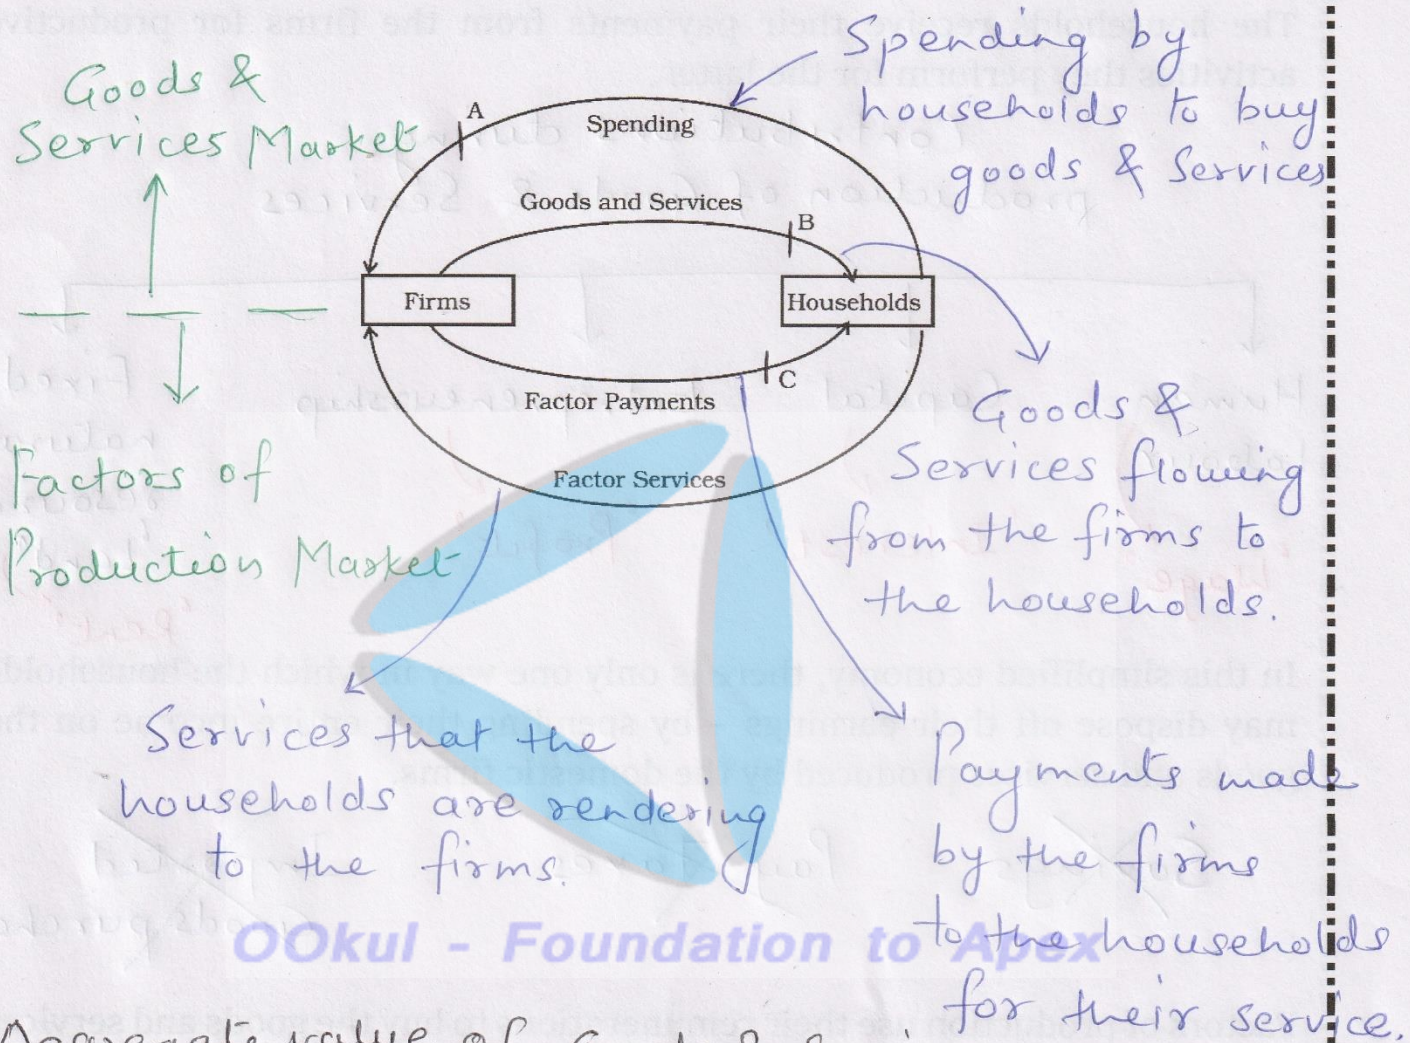 Goods &
Services Market
Spending by
households to buy
goods & Services
A
Spending
Goods and Services
B
Firms
Households
C
Factor Payments
Factor Services
Factors of
Production Market
Goods &
Services flowing
from the firms to
the households.
Services that the
households are rendering
to the firms.
Payments made
by the firms
to the households
for their service.
OOkul - Foundation to Apex
Aggregate value of